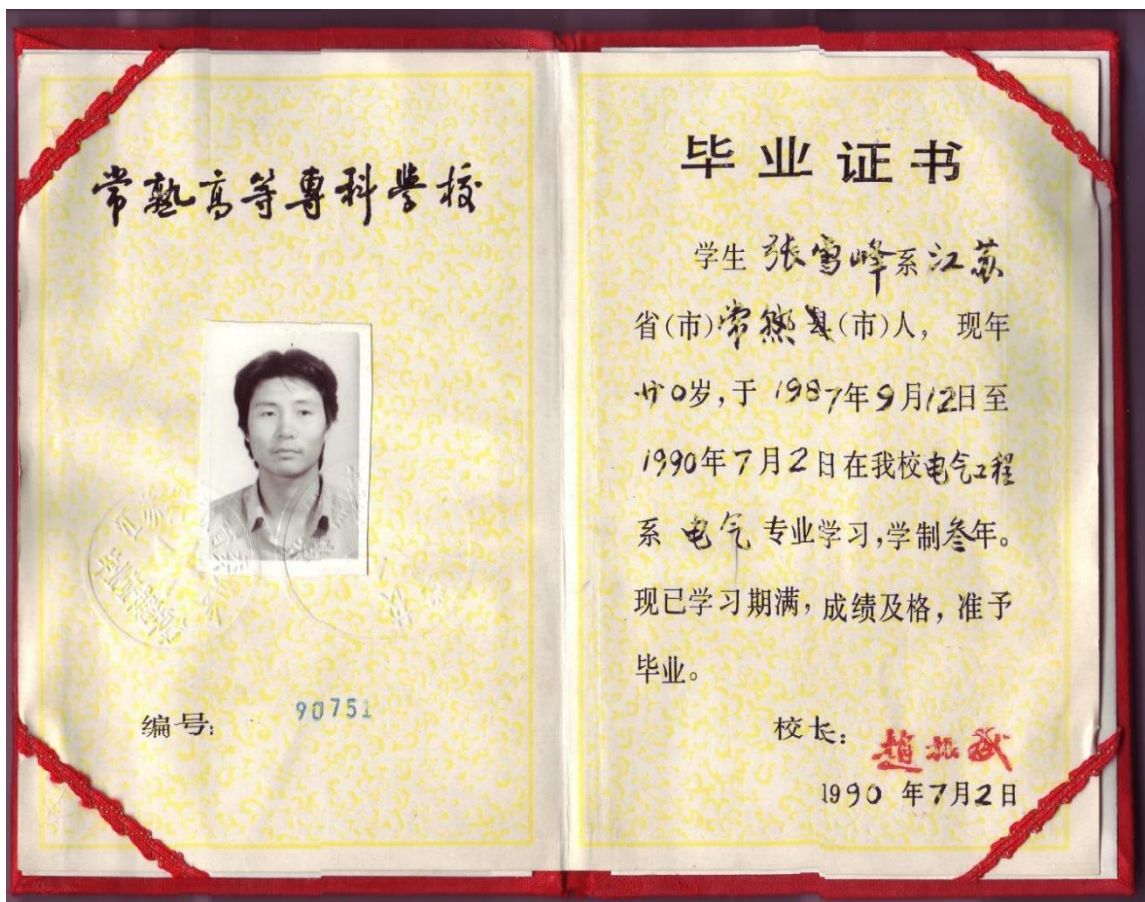 常熟高等專科學校
编号: 90751
毕业证书
学生 张雪峰 系 江苏
省(市)常熟县(市)人, 现年
廿0岁,于 1987年9月12日至
1990年7月2日在我校电气工程
系 电气 专业学习,学制叁年。
现已学习期满, 成绩及格, 准予
毕业。
校长: 趙振武
1990 年7月2日